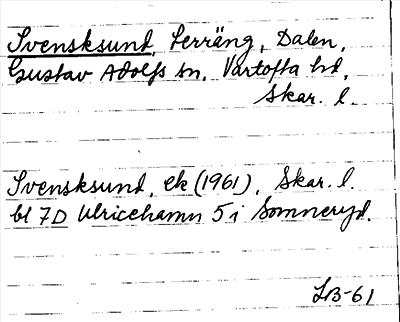 Svensksund, Terräng, Dalen,
Gustav Adolfs sn, Vartofta hd,
Skar. l.
Svensksund, ek (1961), Skar. l.
bl 7D Ulricehamn 5 i Somneryd.
LB-61